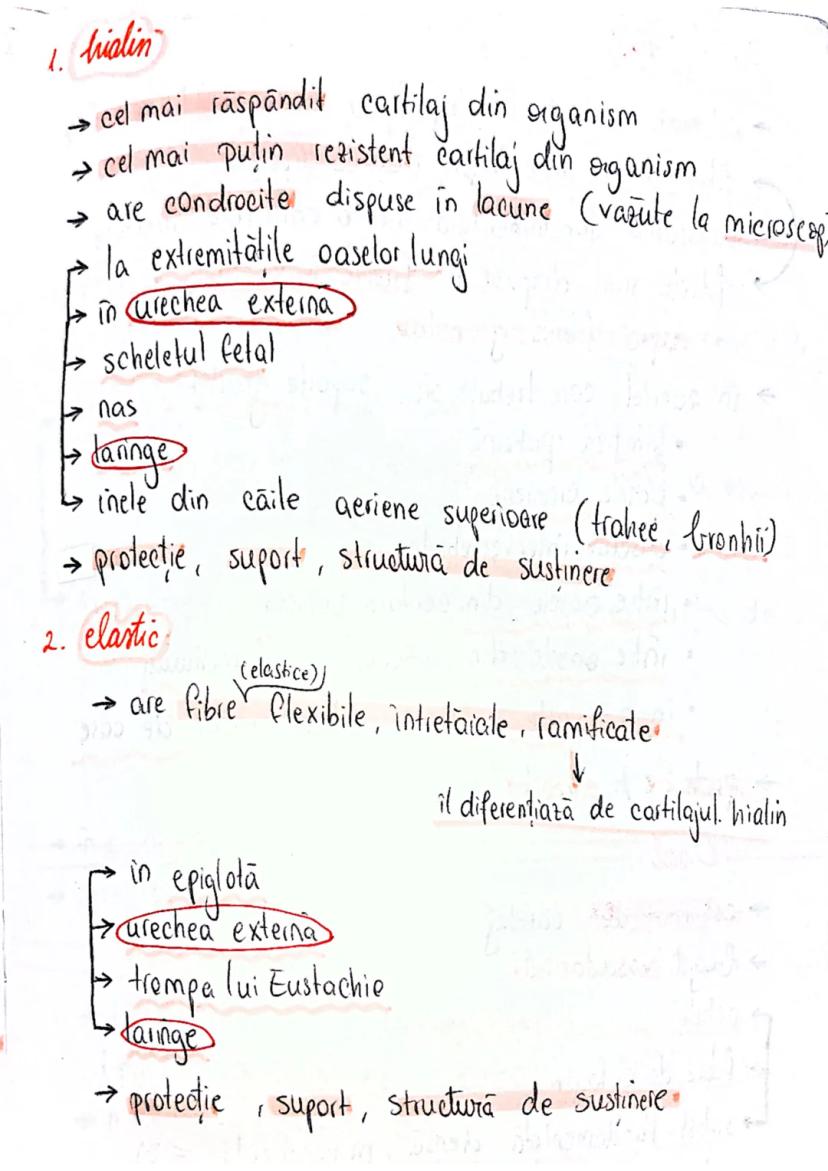 1. hialin
→ cel mai răspândit cartilaj din organism
→ cel mai puțin rezistent cartilaj din organism
→ are condrocite dispuse în lacune (văzute la microscop
→ la extremitățile oaselor lungi
→ în urechea externă
→ scheletul fetal
→ nas
→ laringe
→ inele din căile aeriene superioare (trahee, bronhii)
→ protecție, suport, structură de susținere
2. elastic
(elastice)
→ are fibre flexibile, întretăiate, ramificate
↓
îl diferențiază de cartilajul hialin
→ în epiglotă
→ urechea externă
→ trompa lui Eustachie
→ laringe
→ protecție, suport, structură de susținere